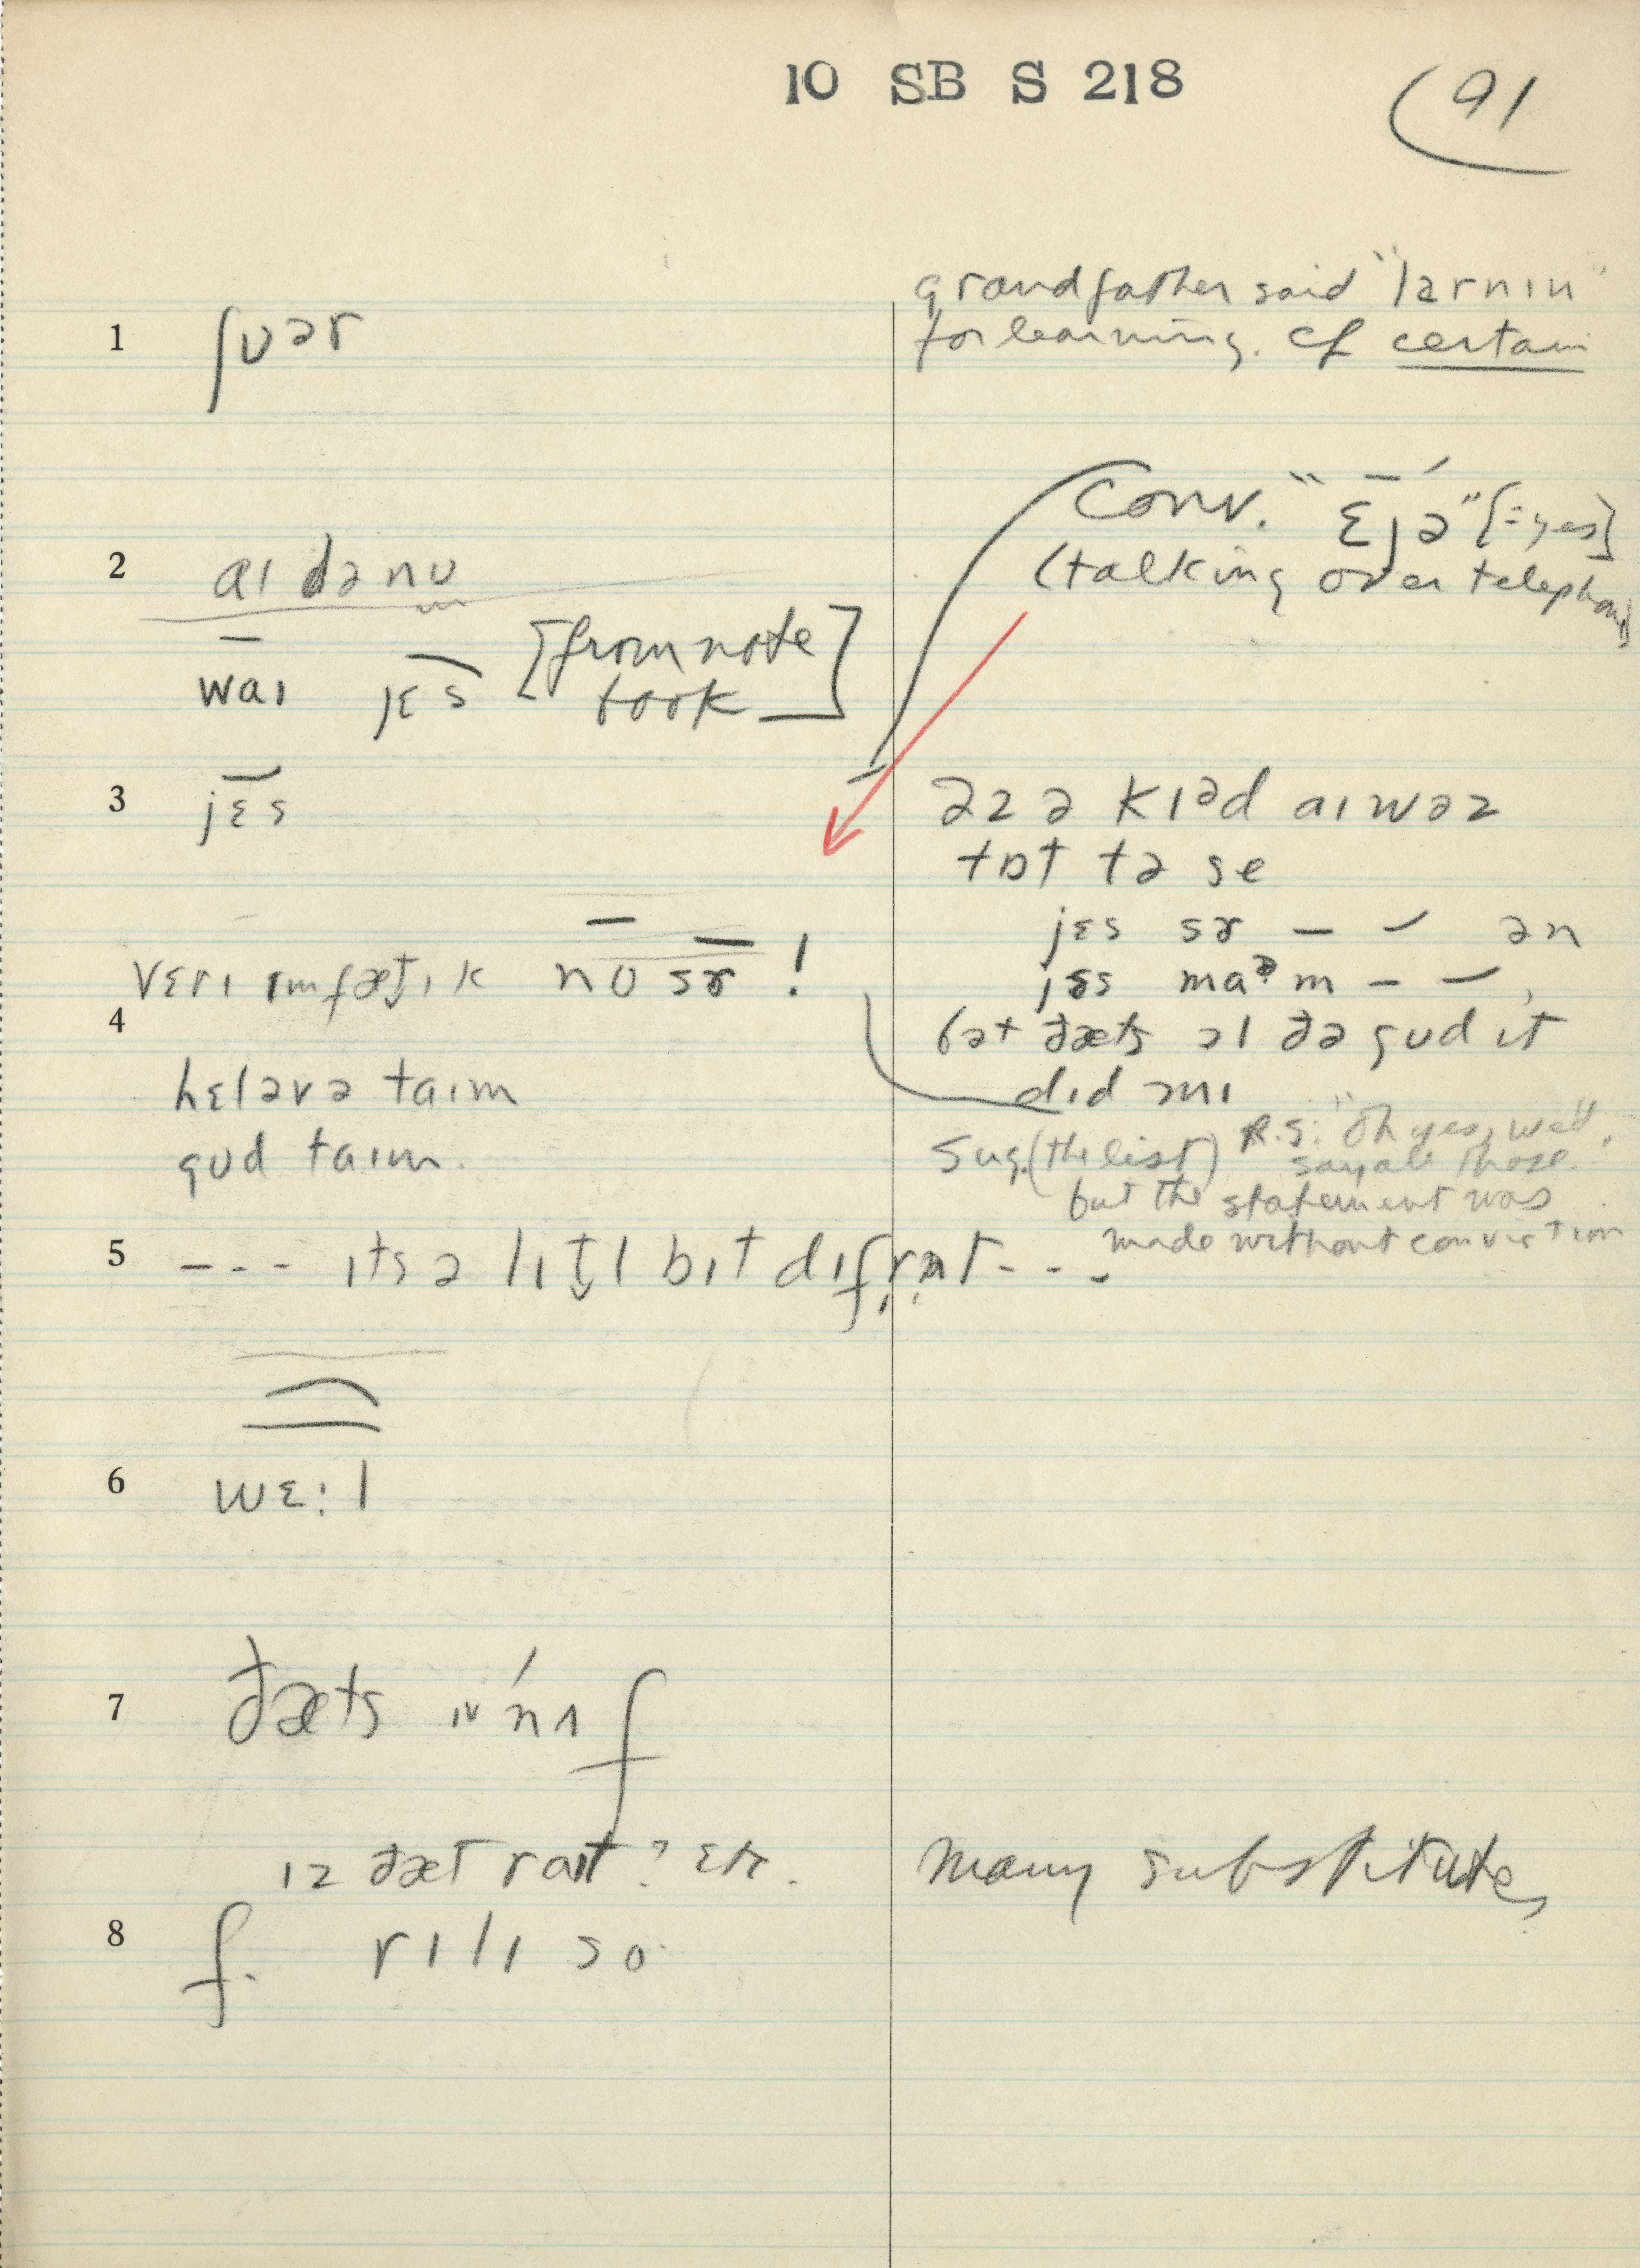 10 SB S 218
91
grandfather said "larnın"
for learning. cf certain
1 ʃʊər
Conv. "ɛjə" [=yes]
(talking over telephone)
2 aɪ dənʊ
waɪ jɛs [from note
book]
3 jɛs
əz ə kɪᵊd aɪ wəz
tɒt tə se
jɛs sɚ — — ən
jɛs maᵊm — —,
bət ðæts ɔl ðə gud ɪt
did mɪ
vɛrɪ ɪmfæt̬ɪk no sɚ !
4
hɛləvə taɪm
gʊd taɪm.
Sug. (the list) R.S: "Oh yes, we'd
say all those."
but the statement was
made without conviction
5 --- ɪts ə lɪt̬l bɪt dɪfrnt---
6 wɛ:l
7 ðæts ɪˈnʌf
ɪz ðæt raɪt? etc.
many substitutes
8 f. rɪlɪ so